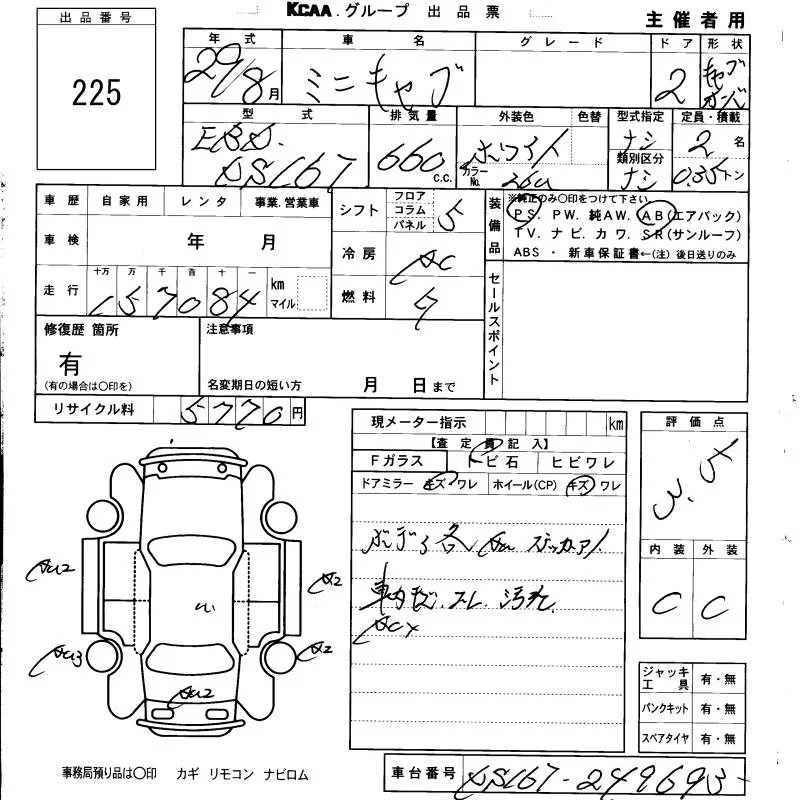 KCAA.グループ 出品票
主催者用
出品番号
225
年式 車名 グレード ドア 形状
29/8月 ミニキャブ 2 キャブ
型式 排気量 外装色 色替 型式指定 定員・積載
EBD. 660 c.c. ホワイト ナシ 2名
DS16T カラーNo. 26U 類別区分 ナシ 0.35トン
車歴 自家用 レンタ 事業.営業車
車検 年 月
走行 十万 万 千 百 十 一 km マイル
157084
シフト フロア コラム パネル 5
冷房 AC
燃料
装備品
※純正のみ○印をつけて下さい。
PS. PW. 純AW. AB(エアバック)
TV. ナビ. カワ. SR(サンルーフ)
ABS ・ 新車保証書←(注)後日送りのみ
セールスポイント
修復歴 箇所
有
(有の場合は○印を)
注意事項
名変期日の短い方 月 日まで
リサイクル料 5770円
現メーター指示 km
【査定員記入】
Fガラス トビ石 ヒビワレ
ドアミラー キズ ワレ ホイール(CP) キズ ワレ
車内キズ.スレ.汚れ
評価点
3.5
内装 外装
C C
F
A2
AU2
AU3
A2
AU2
ジャッキ工具 有・無
パンクキット 有・無
スペアタイヤ 有・無
事務局預り品は○印 カギ リモコン ナビロム
車台番号 DS16T-249693-